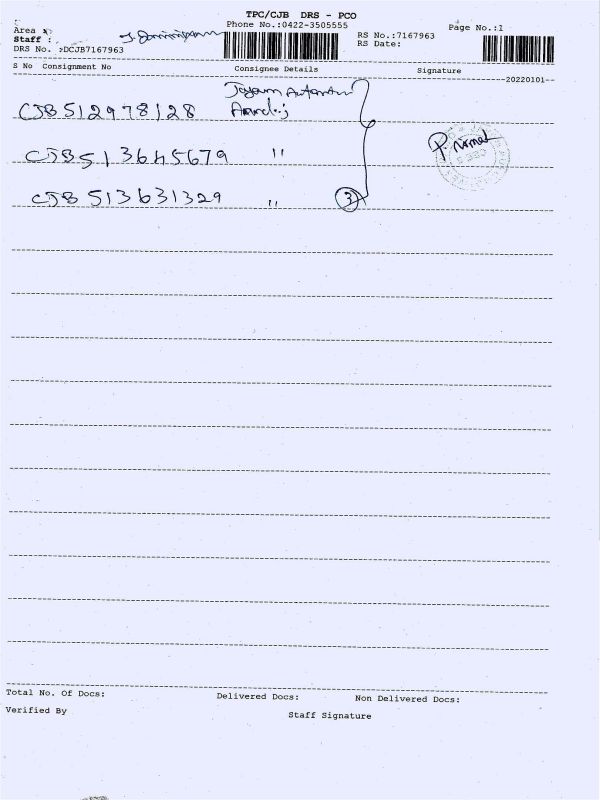 TPC/CJB DRS - PCO
Phone No.:0422-3505555
Page No.:1
Area :
Staff :
RS No.:7167963
DRS No. :DCJB7167963
RS Date:
S No Consignment No Consignee Details Signature
20220101
CJB 512978128
CJB 513645679 "
CJB 513631329 " 3
Total No. Of Docs: Delivered Docs: Non Delivered Docs:
Verified By
Staff Signature